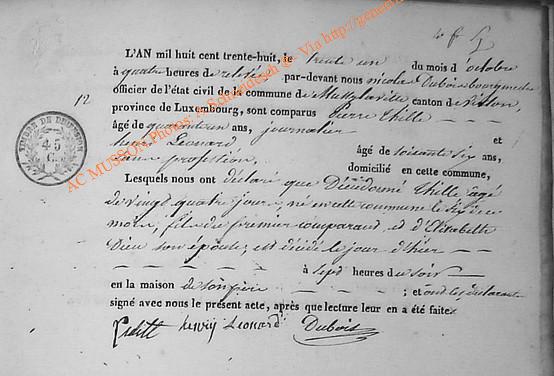 L'AN mil huit cent trente-huit, le trente un du mois d'octobre
à quatre heures de relevé par-devant nous nicolas Dubois bourgmestre
officier de l'état civil de la commune de Mussylaville canton de Virton,
province de Luxembourg, sont comparus Pierre Thille
12
âgé de quarante un ans, journalier et
henri Leonard âgé de soixante six ans,
sans profession, domicilié en cette commune,
Lesquels nous ont déclaré que Dieudonné Thille agé
de vingt quatre jours, né en cette commune le six du
mois, fils du premier comparant, et d'Elisabeth
Dieu son épouse, est décédé le jour d'hier
à sept heures du soir
en la maison de son père ; et ont les déclarants
signé avec nous le présent acte, après que lecture leur en a été faite.
henry Leonard Dubois
TIMBRE DE DIMENSION
45
C.
AC MUSSON Photos: A. Schmideisch @ - Via http://genevi